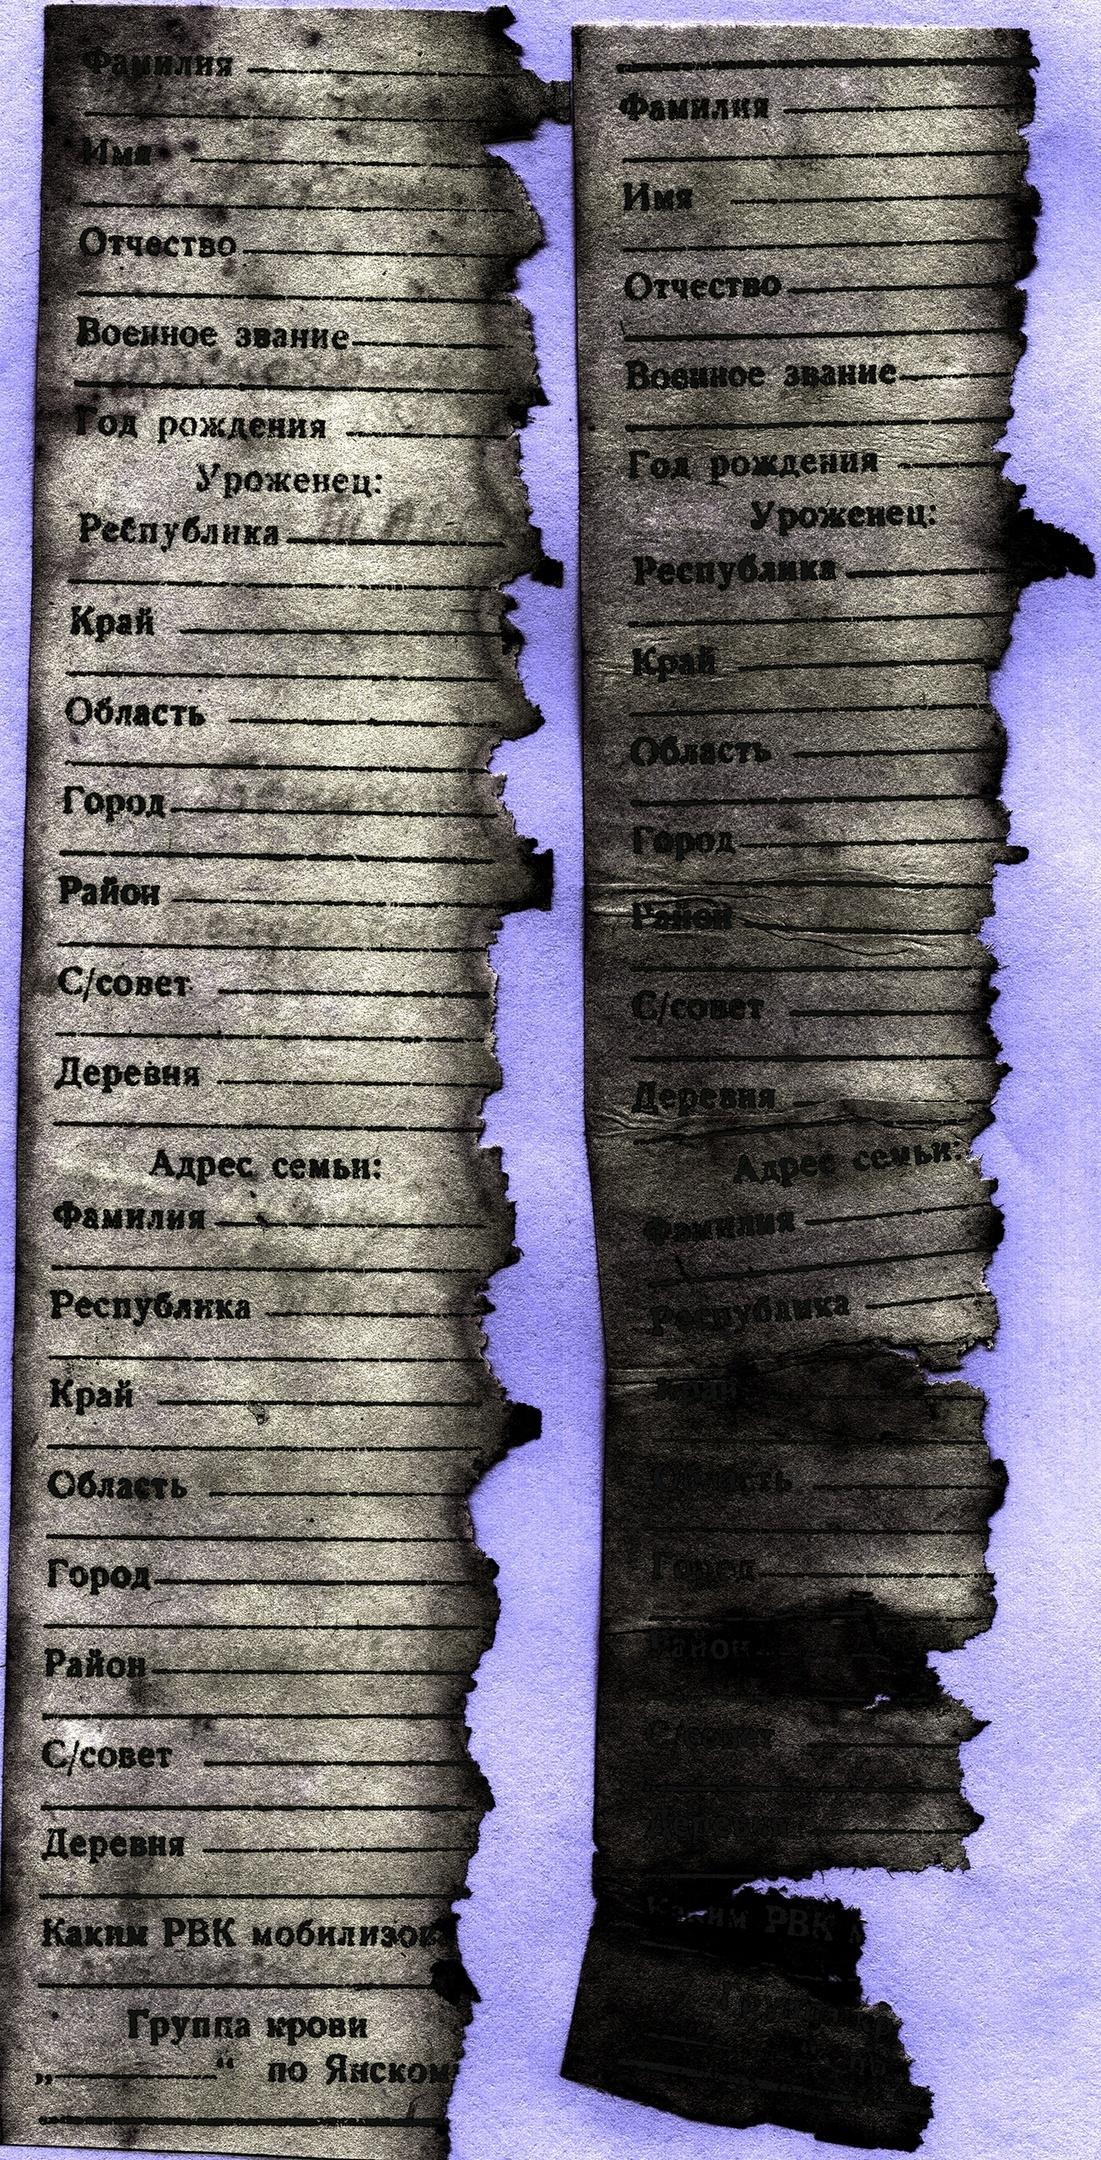 Фамилия
Имя
Отчество
Военное звание
Год рождения
Уроженец:
Республика
Край
Область
Город
Район
С/совет
Деревня
Адрес семьи:
Фамилия
Республика
Край
Область
Город
Район
С/совет
Деревня
Каким РВК мобилизов
Группа крови
„ “ по Янском
Фамилия
Имя
Отчество
Военное звание
Год рождения
Уроженец:
Республика
Край
Область
Город
Район
С/совет
Деревня
Адрес семьи:
Фамилия
Республика
Край
Область
Город
Район
С/совет
Деревня
Каким РВК м
Группа кр
“ по